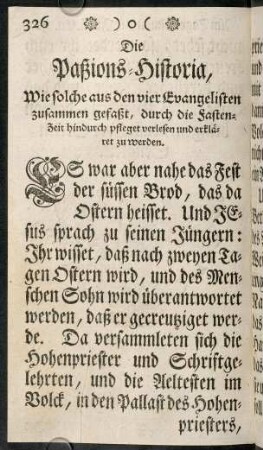 326 ❁ ) o ( ❁
Die
Paßions-Historia,
Wie solche aus den vier Evangelisten
zusammen gefaßt, durch die Fasten-
Zeit hindurch pfleget verlesen und erklä-
ret zu werden.
ES war aber nahe das Fest
der süssen Brod, das da
Ostern heisset. Und JE-
sus sprach zu seinen Jüngern:
Ihr wisset, daß nach zweyen Ta-
gen Ostern wird, und des Men-
schen Sohn wird überantwortet
werden, daß er gecreutziget wer-
de. Da versammleten sich die
Hohenpriester und Schriftge-
lehrten, und die Aeltesten im
Volck, in den Pallast des Hohen-
priesters,